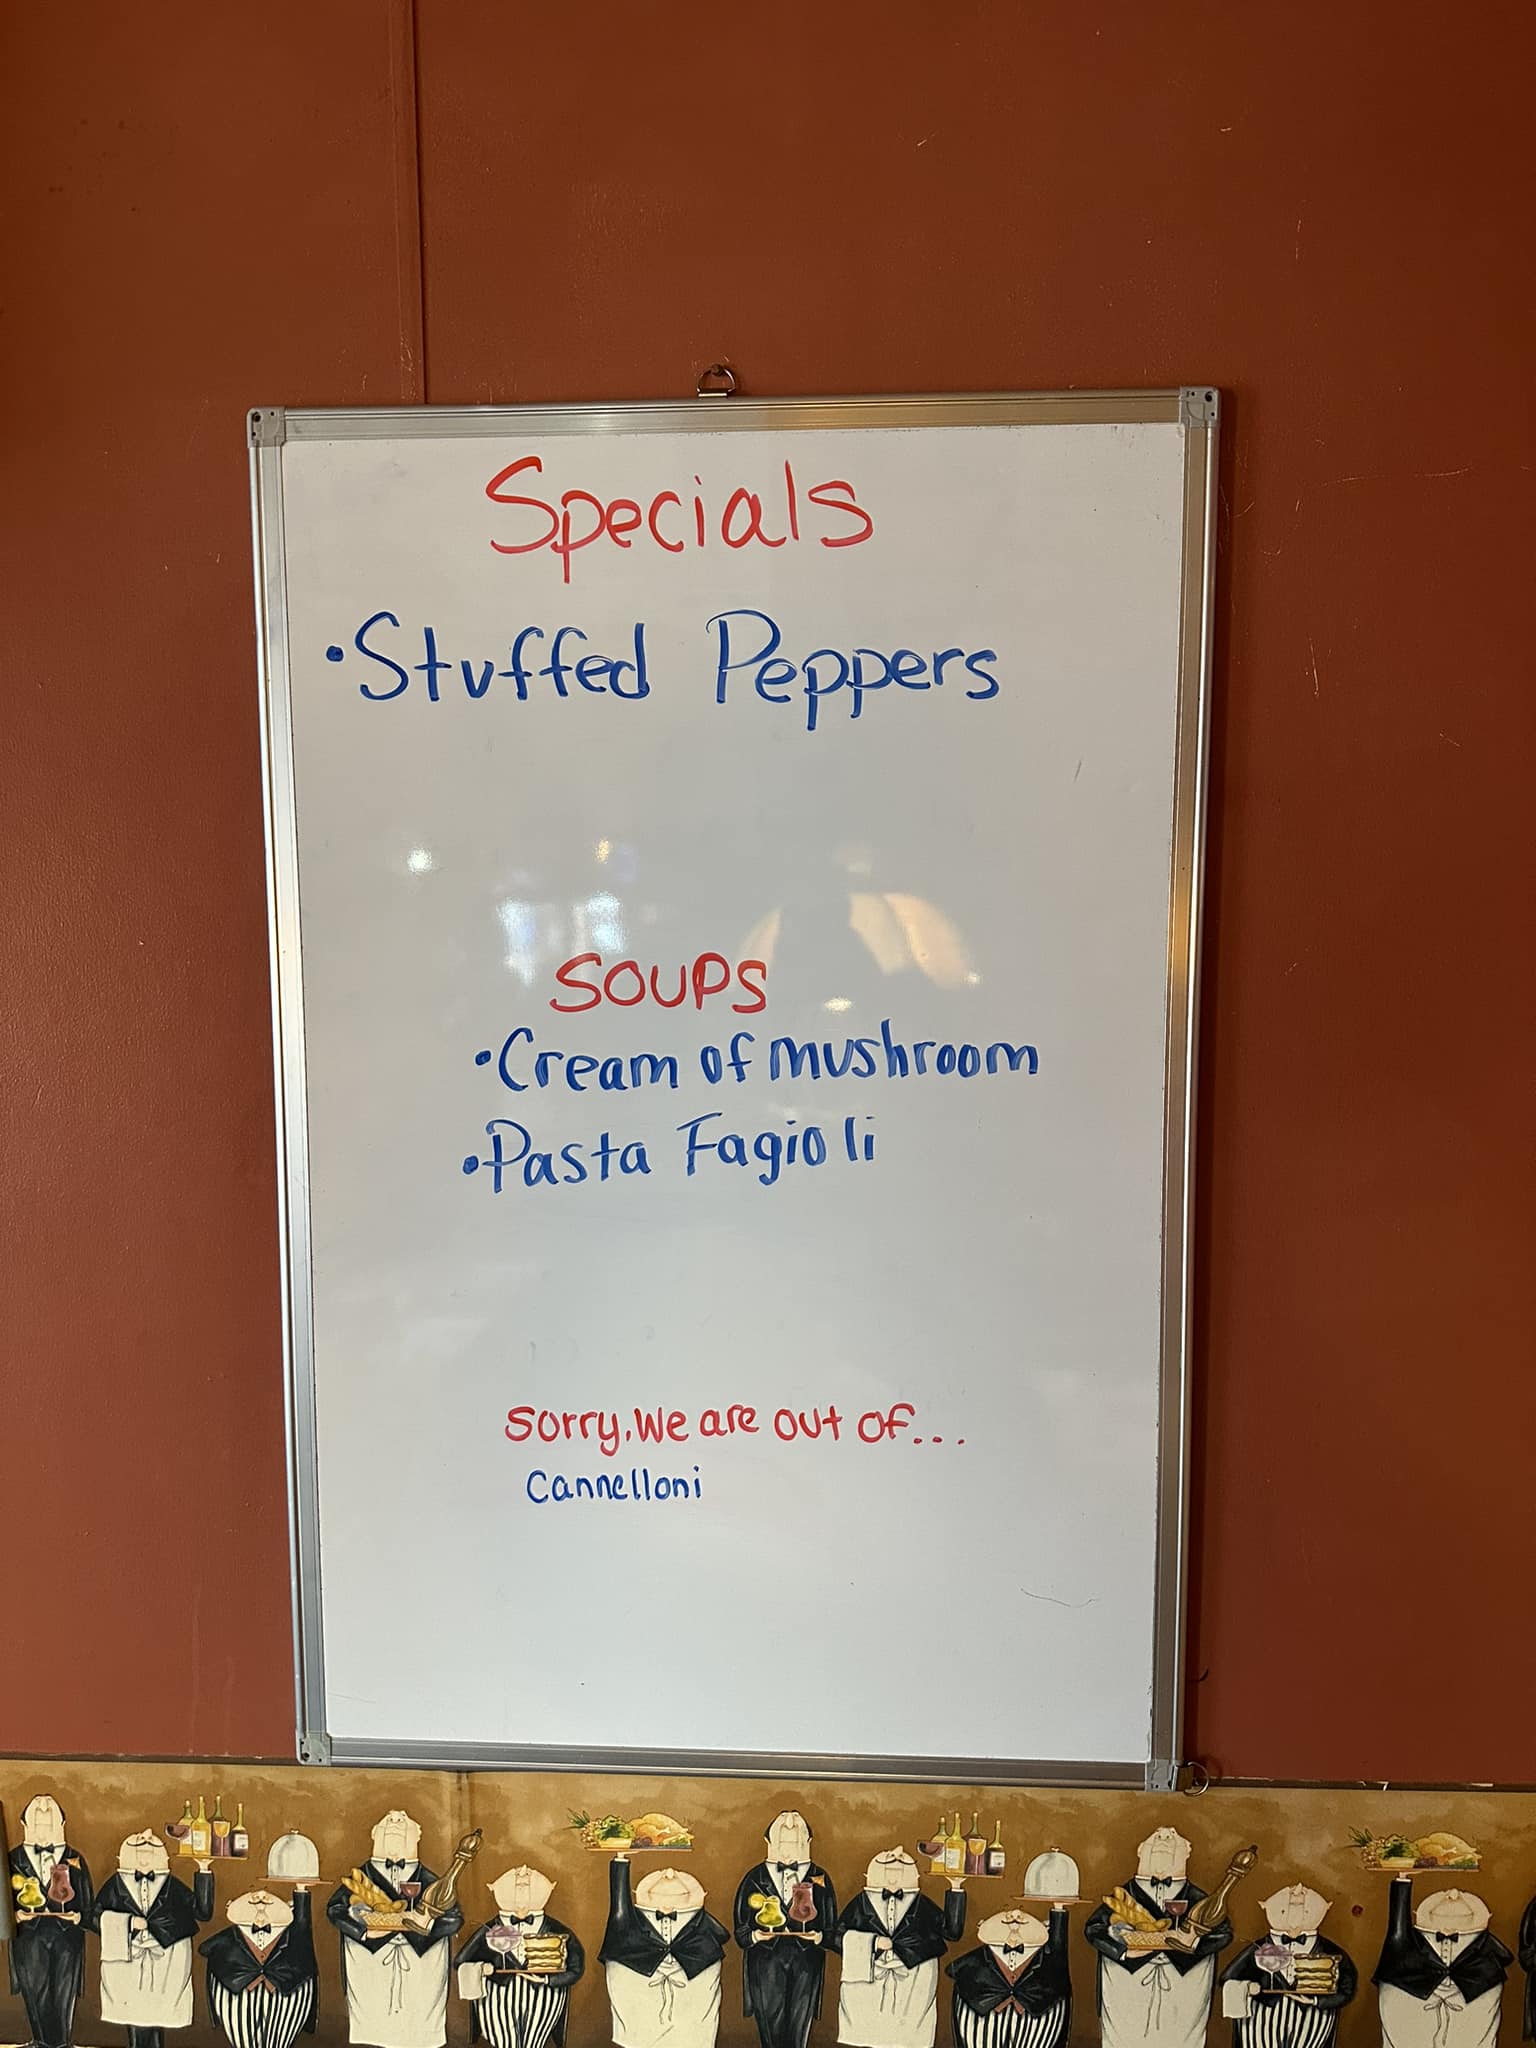 Specials
• Stuffed Peppers
SOUPS
• Cream of mushroom
• Pasta Fagioli
Sorry, We are out of...
Cannelloni